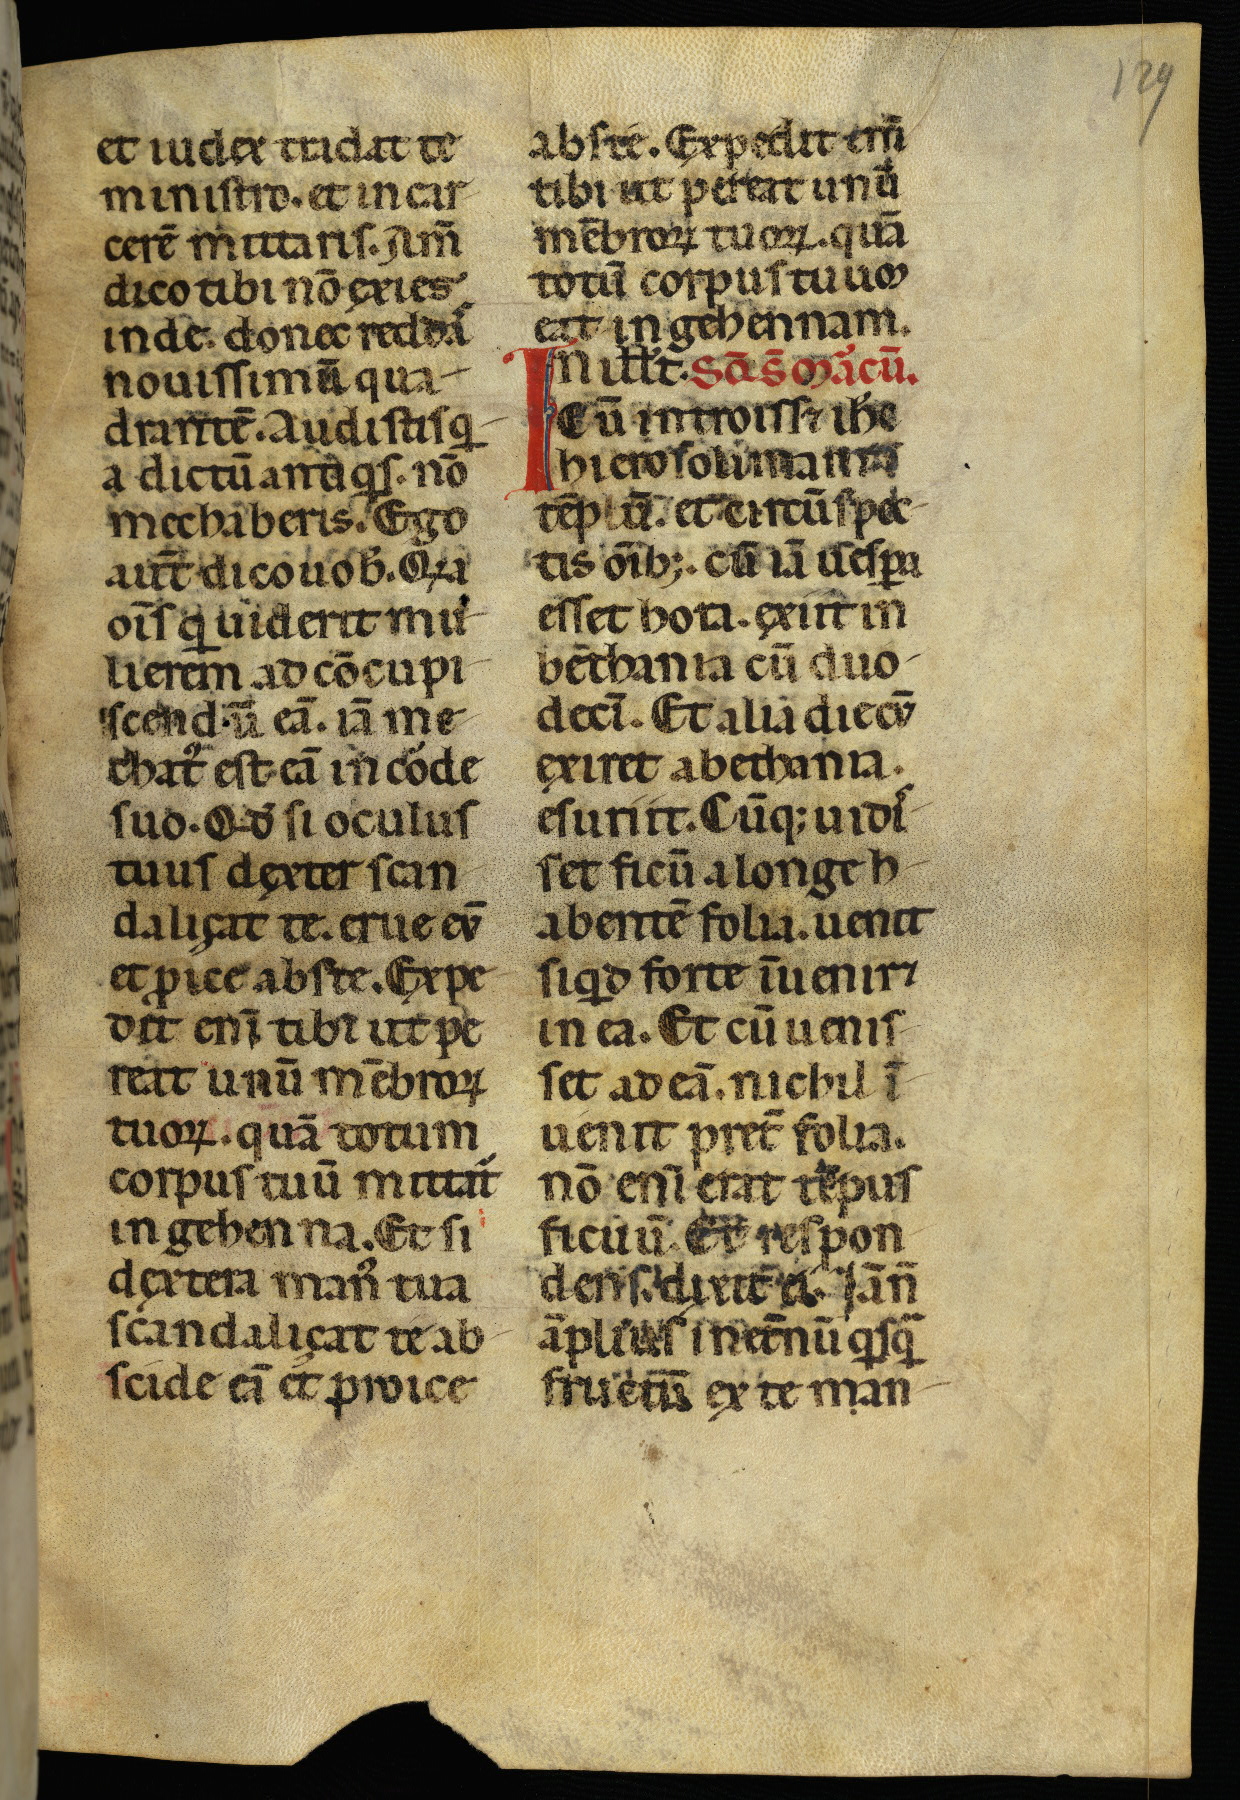 129
et iudex tradat te
ministro. et in car
cerē mittaris. Am̄
dico tibi nō exies
inde. donec redda᷒
nouissimū qua
drantē. Audistis q
a dictū antiqs. nō
mechaberis. Ego
aut̄ dico uob̄. Qꝛa
oīs q uiderit mu
lierem ad cōcupi
scendū eā. iā me
chatꝰ est eā in corde
suo. Qd̄ si oculus
tuus dexter scan
daliçat te. erue eū
et ꝓice abs te. Expe
dit enī tibi ut pe
reat unū mēbroꝝ
tuoꝝ. quā totum
corpus tuū mittat᷑
in gehenna. Et si
dextera manꝰ tua
scandaliçat te ab
scide eā et proice
abs te. Expedit em̄
tibi ut pereat unū
mēbroꝝ tuoꝝ. quā
totū corpus tuum
eat in gehennam.
In ill̄ t̄. Scd̄ s̄ Marcū.
Cū introisset ihc
hierosolimam in
tēplū. et circūspec
tis oīb;. cū iā uespa
esset hora. exiit in
bēthania cū duo
decī. Et alia die cū
exiret a bethania.
esuriit. Cūq; uidi᷒
set ficū a longe h
abentē folia. uenit
si qd forte īueniret
in ea. Et cū uenis
set ad eā. nichil ī
uenit pret̄ folia.
nō enī erat tēpus
ficuū. Et respon
dens. dixit ei. Iā n̄
āplius in et̄nū qsq̄
fructū ex te man